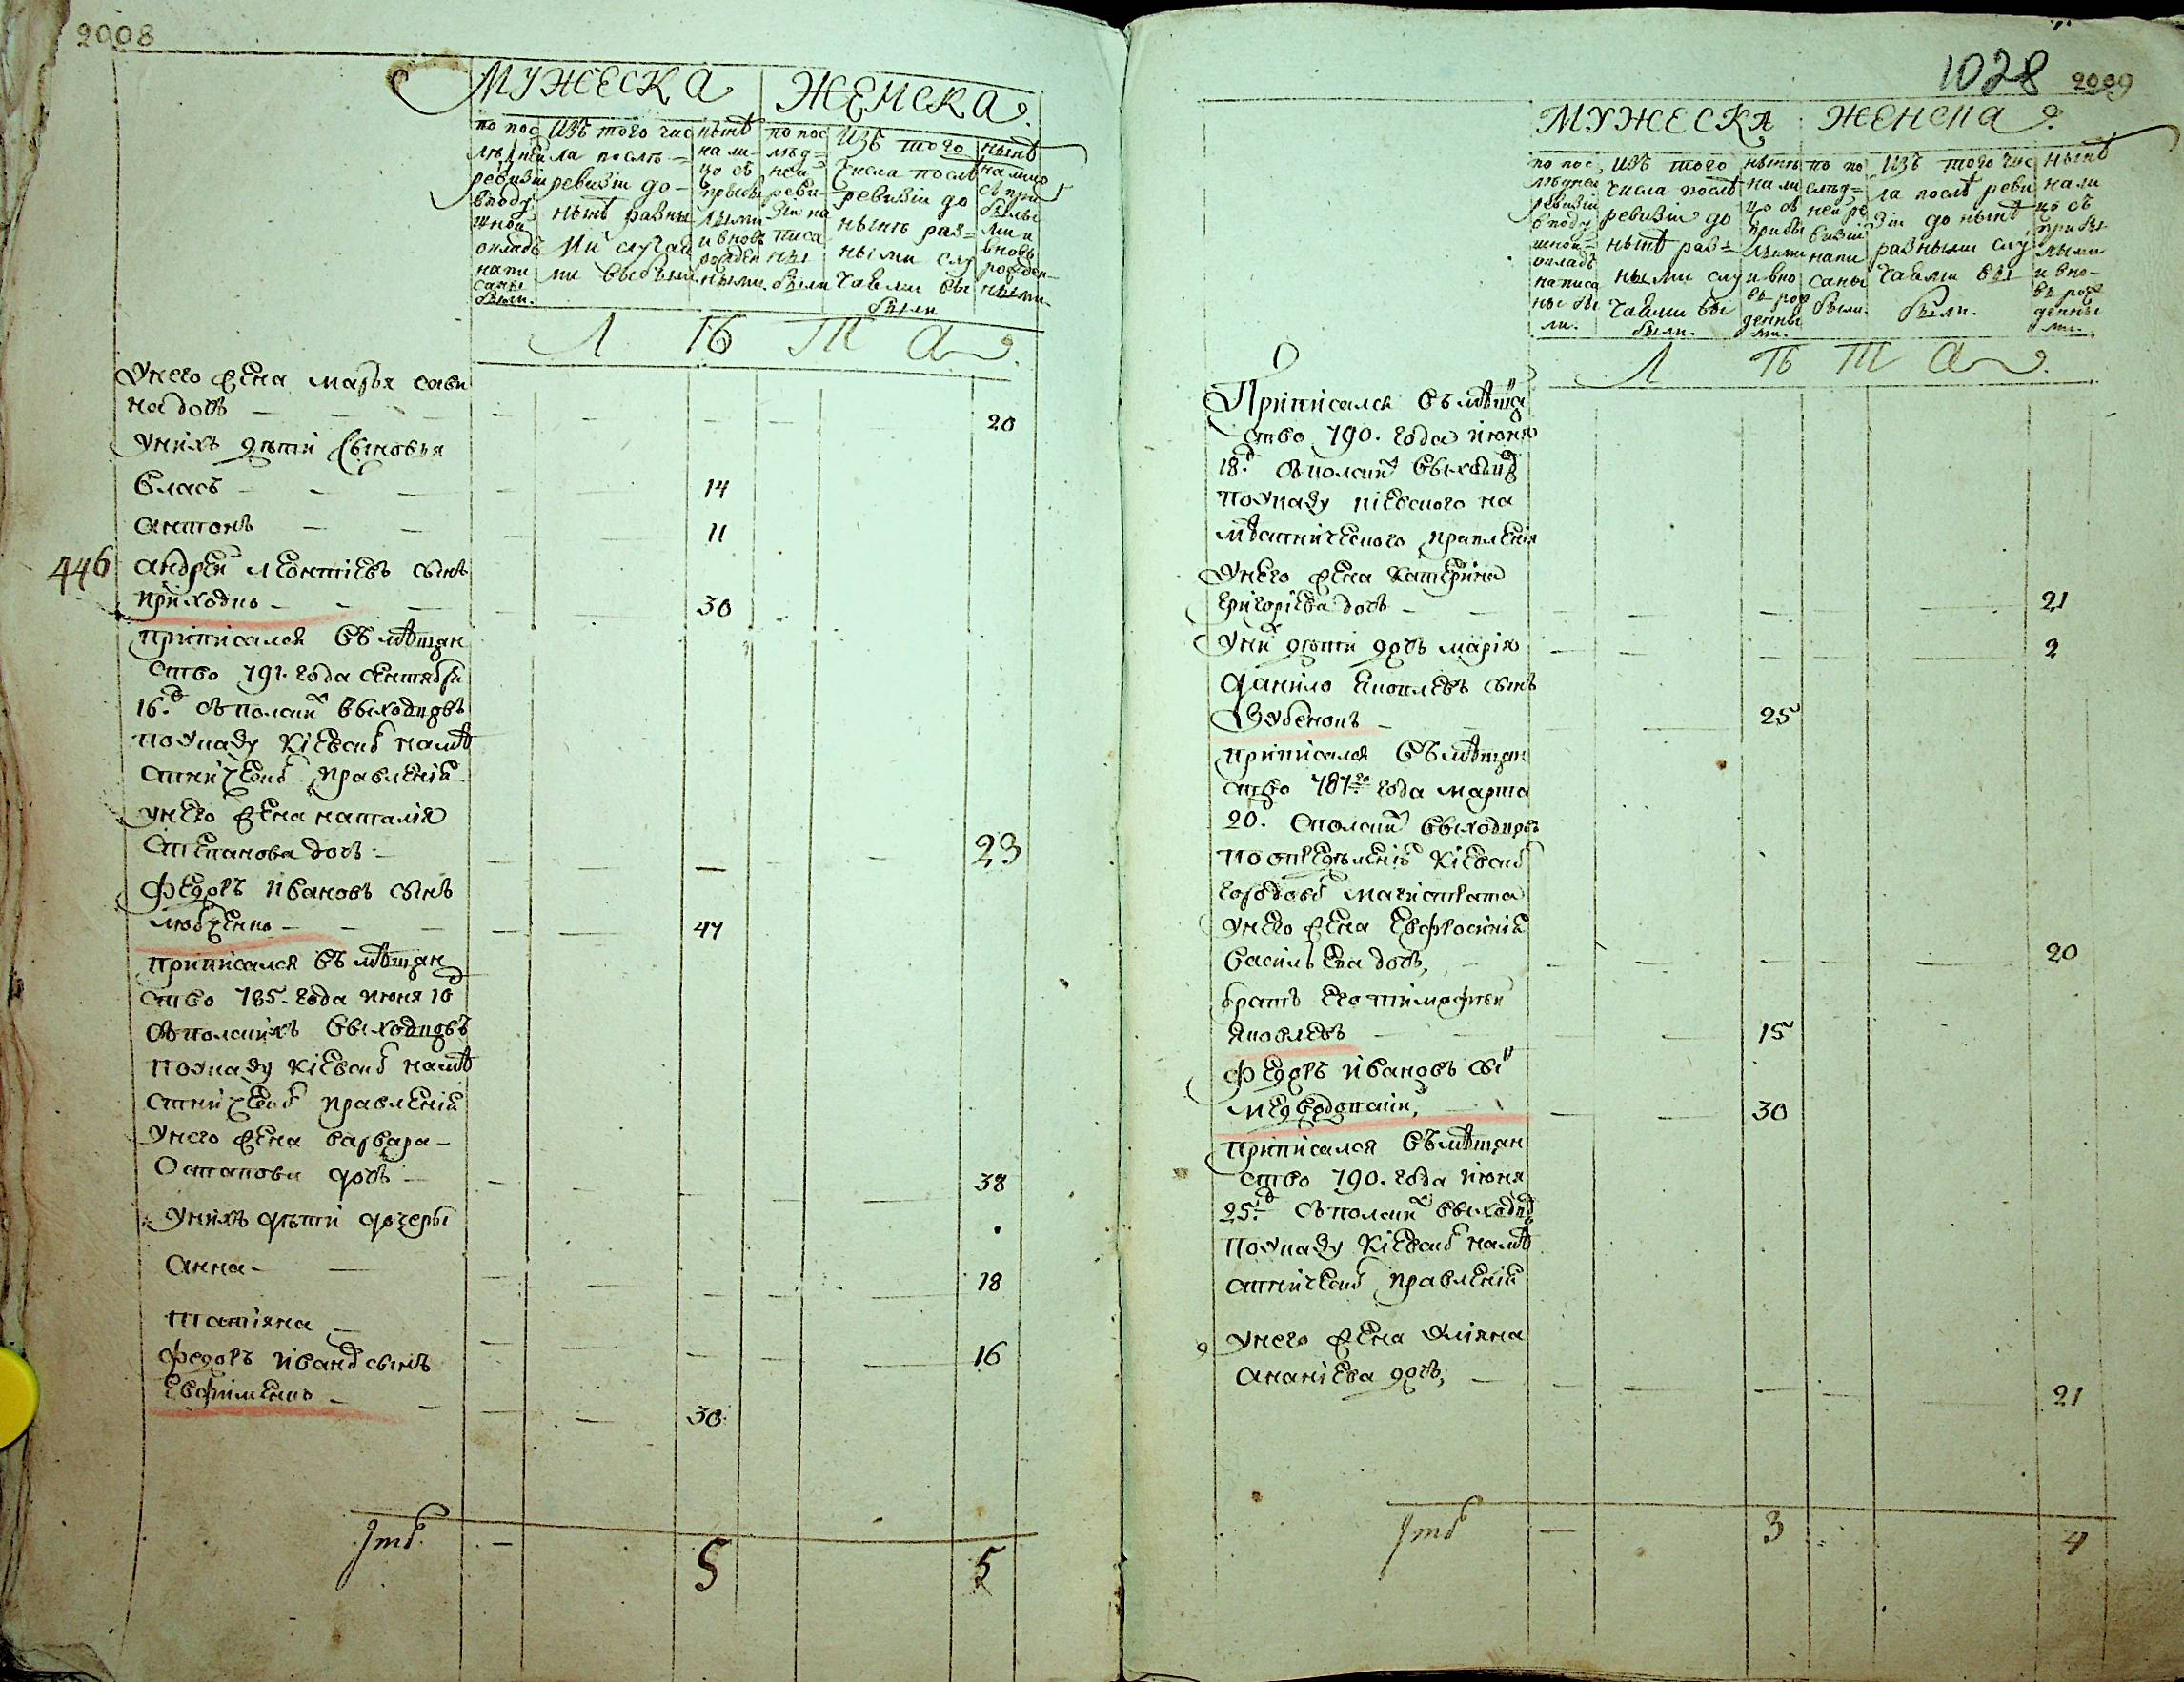 2008
МУЖЕСКА ЖЕНСКА
по пос
лѣдней
ревизіи
вподу
шной
окладѣ
напи
саны
были.
Изъ того чис
ла послѣ
ревизіи до
нынѣ разны
ми случая
ми выбыли.
нынѣ
на ли
цо съ
прибы
лыми
и вновь
рожден
ными.
по пос
лѣд=
ней
реви
зіи на
писа
ны
были
Изъ того
числа послѣ
ревизіи до
нынѣ раз=
ными слу
чаями вы
были
нынѣ
на лицо
съ при
былы
ми и
вновь
рожден
ными.
Л Ѣ Т А
Унего жена марья сави
на дочь 20
Унихъ дѣти Сыновья
Власъ 14
антонъ 11
446 андрей леонтіевъ сынъ
приходко 30
приписался въ мѣщан
ство 791. года Сентября
16.д съ полских выходцовъ
поуказу Кіевског намѣ
стническог правленія
унего жена наталія
Степанова дочь 23
Федоръ Ивановъ сынъ
любченко 47
приписался въ мѣщан
ство 785. года июня 10
съ полскихъ выходцовъ
поуказу Кіевског намѣ
стническог правленія
Унего жена варвара
Остапова дочь 38
Унихъ дѣти дочери
Анна 18
Татіяна 16
Федоръ Иванов сынъ
Евфименко 30
Итог 5 5
1028 2009
МУЖЕСКА ЖЕНСКА
по пос
лѣдней
ревизіи
вподу
шной
окладѣ
написа
ны бы
ли.
Изъ того
числа послѣ
ревизіи до
нынѣ раз=
ными слу
чаями вы
были.
нынѣ
на ли
цо съ
прибы
лыми
и вно
вь рож
денны
ми.
по по
слѣд=
ней ре
визіи
напи
саны
были.
Изъ того чис
ла послѣ реви
зіи до нынѣ
разными слу
чаями вы
были.
нынѣ
на ли
цо съ
прибы
лыми
и вно
вь рож
денны
ми.
Л Ѣ Т А
Приписался въ мѣща
ство 790. года июня
18.д съ полских выходцов
поуказу кіевского на
мѣстнического правленія
Унего жена Катерина
григоріева дочь 21
Уних дѣти дочь марія 2
Данило Яковлевъ сынъ
Зубенокъ 25
приписался въ мѣщан
ство 787го года марта
20.д с полских выходцовъ
по опредѣленію Кіевског
городовог магистрата
Унего жена Евфросинія
васильева дочь, 20
братъ его тимофѣй
Яковлевъ 15
Федоръ Ивановъ сын
медводскій, 30
приписался въ мѣщан
ство 790. года июня
25.д съ полских выходцов
поуказу Кіевског намѣ
стническог правленія
Унего жена Уліяна
ананіева дочь, 21
Итог 3 4